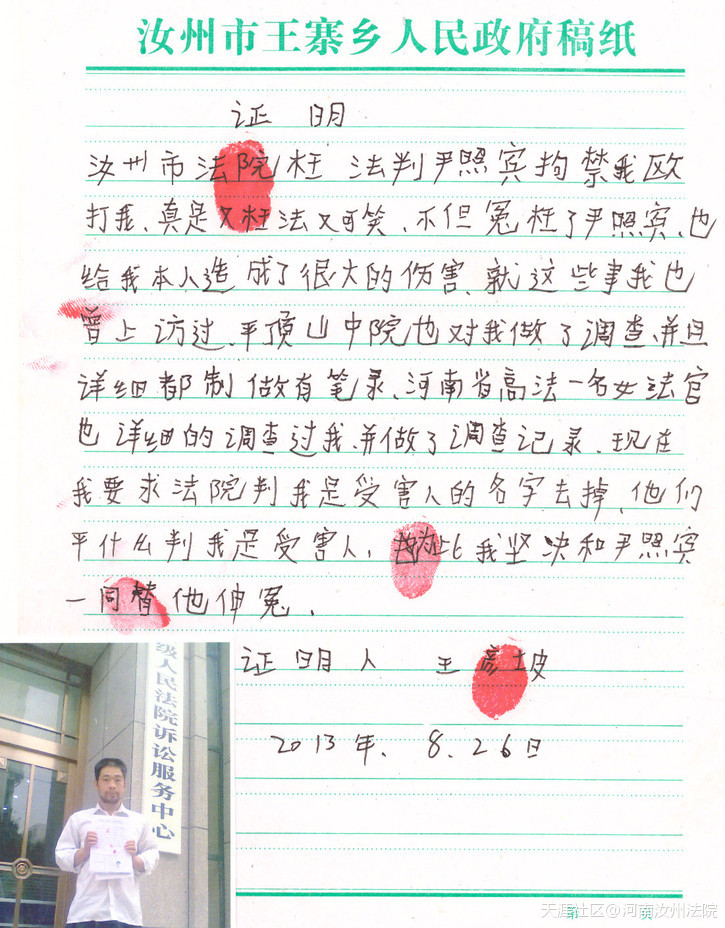 汝州市王寨乡人民政府稿纸
证 明
汝州市法院枉 法判尹照宾拘禁我欧
打我、真是又枉法又可笑、不但冤枉了尹照宾、也
给我本人造成了很大的伤害、就这些事我也
曾上访过、平顶山中院也对我做了调查、并且
详细都制做有笔录、河南省高法一名女法官
也详细的调查过我、并做了调查记录、现在
我要求法院判我是受害人的名字去掉、他们
平什么判我是受害人、为此我坚决和尹照宾
一同替他伸冤、
证明人 王彦坡
2013年、8、26日
级人民法院诉讼服务中心
第 页
天涯社区@河南汝州法院